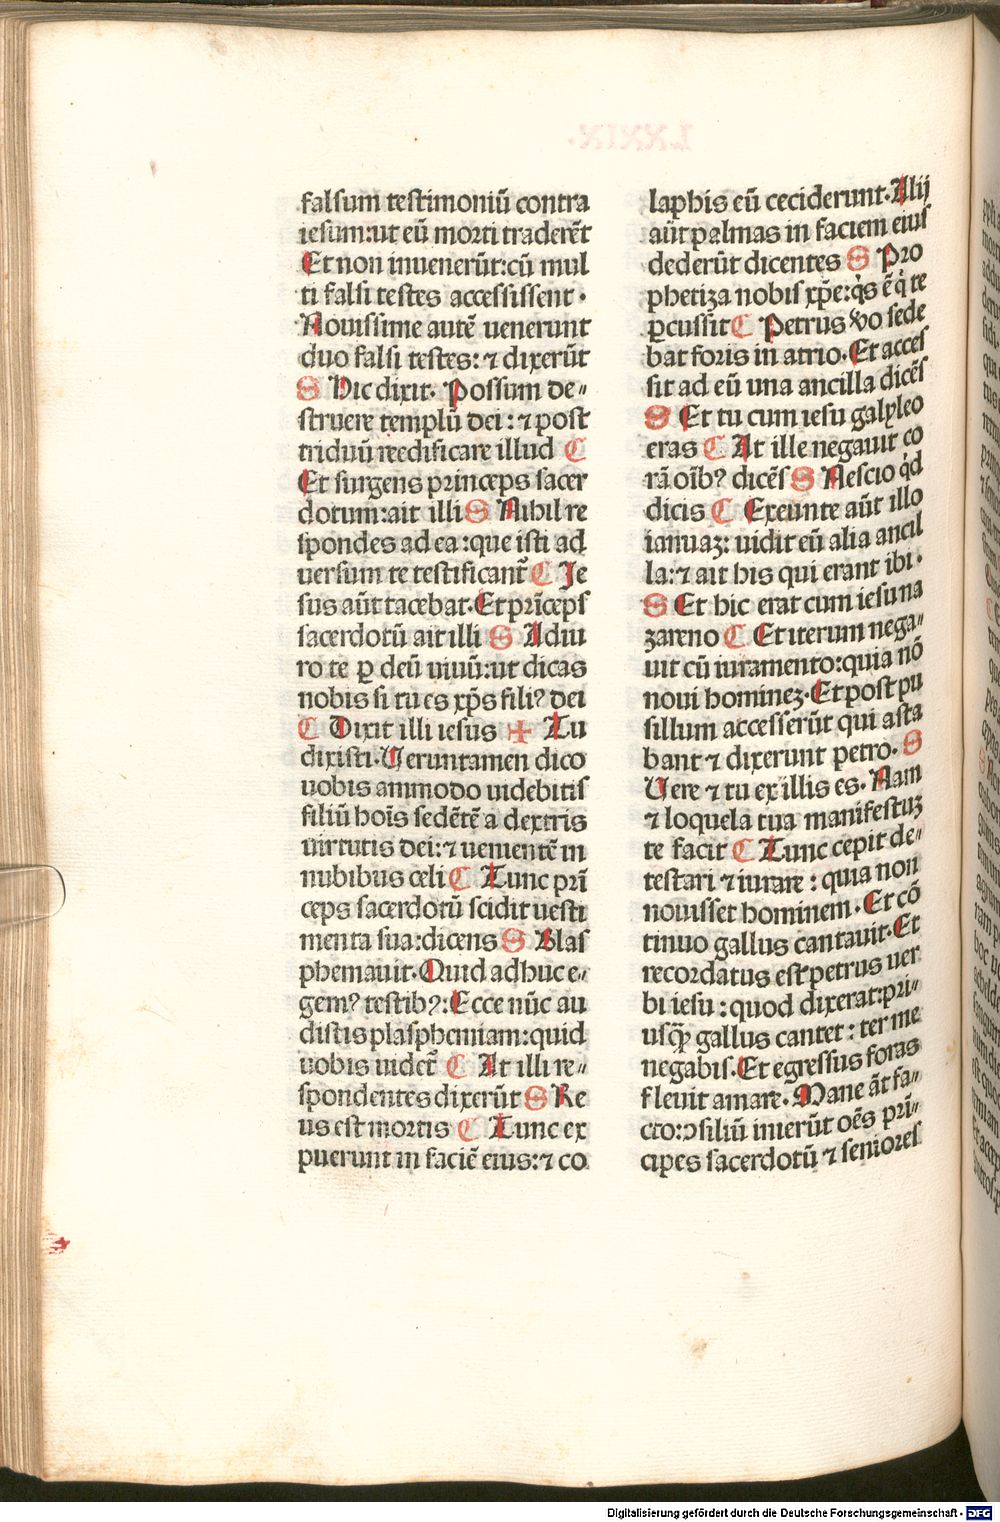 falsum testimoniū contra
iesum:ut eū morti traderēt
Et non inuenerūt:cū mul
ti falsi testes accessissent.
Nouissime autē uenerunt
duo falsi testes: ⁊ dixerūt
S Hic dixit. Possum de⸗
struere templū dei: ⁊ post
triduū reedificare illud C
Et surgens princeps sacer
dotum:ait illi S Nihil re
spondes ad ea:que isti ad
uersum te testificant̄ C Ie
sus aūt tacebat. Et prīceps
sacerdotū ait illi S Adiu
ro te ꝑ deū uiuū:ut dicas
nobis si tu es xp̄s filiꝰ dei
C Dixit illi iesus ✚ Tu
dixisti. Veruntamen dico
uobis ammodo uidebitis
filiū hoīs sedētē a dextris
uirtutis dei: ⁊ uenientē in
nubibus celi C Tunc prī
ceps sacerdotū scidit uesti
menta sua:dicens S Blas
phemauit. Quid adhuc e⸗
gemꝰ testibꝰ: Ecce nūc au
distis plasphemiam:quid
uobis uidet̄ C At illi re⸗
spondentes dixerūt S Re
us est mortis C Tunc ex
puerunt in faciē eius: ⁊ co
laphis eū ceciderunt. Alij
aūt palmas in faciem eius
dederūt dicentes S Pro
phetiza nobis xp̄e:q̇s ē q̇ te
ꝑcussit C Petrus ꝟo sede
bat foris in atrio. Et acces
sit ad eū una ancilla dicēs
S Et tu cum iesu galyleo
eras C At ille negauit co
rā oībꝰ dicēs S Nescio qd̓
dicis C Exeunte aūt illo
ianuaꝫ: uidit eū alia ancil
la: ⁊ ait his qui erant ibi.
S Et hic erat cum iesu na
zareno C Et iterum nega⸗
uit cū iuramento:quia nō
noui homineꝫ. Et post pu
sillum accesserūt qui asta
bant ⁊ dixerunt petro. S
Vere ⁊ tu ex illis es. Nam
⁊ loquela tua manifestuꝫ
te facit C Tunc cepit de⸗
testari ⁊ iurare: quia non
nouisset hominem. Et cō
tinuo gallus cantauit. Et
recordatus est petrus uer
bi iesu: quod dixerat:pri⸗
usqꝫ gallus cantet: ter me
negabis. Et egressus foras
fleuit amare. Mane āt fa⸗
cto:ↄsiliū inierūt oēs pri⸗
cipes sacerdotū ⁊ seniores
Digitalisierung gefördert durch die Deutsche Forschungsgemeinschaft - DFG